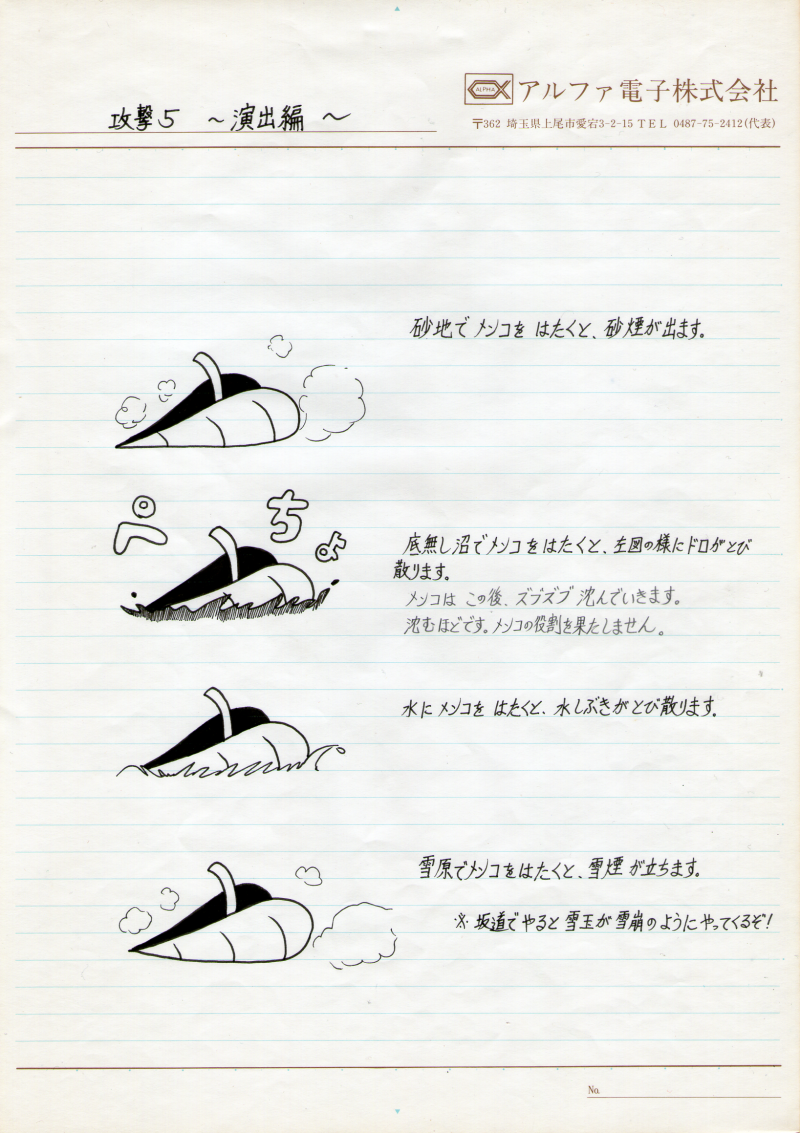 ALPHA アルファ電子株式会社
攻撃5 ~演出編~
〒362 埼玉県上尾市愛宕3-2-15 TEL 0487-75-2412(代表)
砂地でメンコを はたくと、砂煙が出ます。
ぺちょ
底無し沼でメンコをはたくと、左図の様にドロがとび
散ります。
メンコは この後、ズブズブ沈んでいきます。
沈むほどです。メンコの役割を果たしません。
水にメンコを はたくと、水しぶきがとび散ります。
雪原でメンコをはたくと、雪煙が立ちます。
※坂道でやると雪玉が雪崩のようにやってくるぞ!
No.